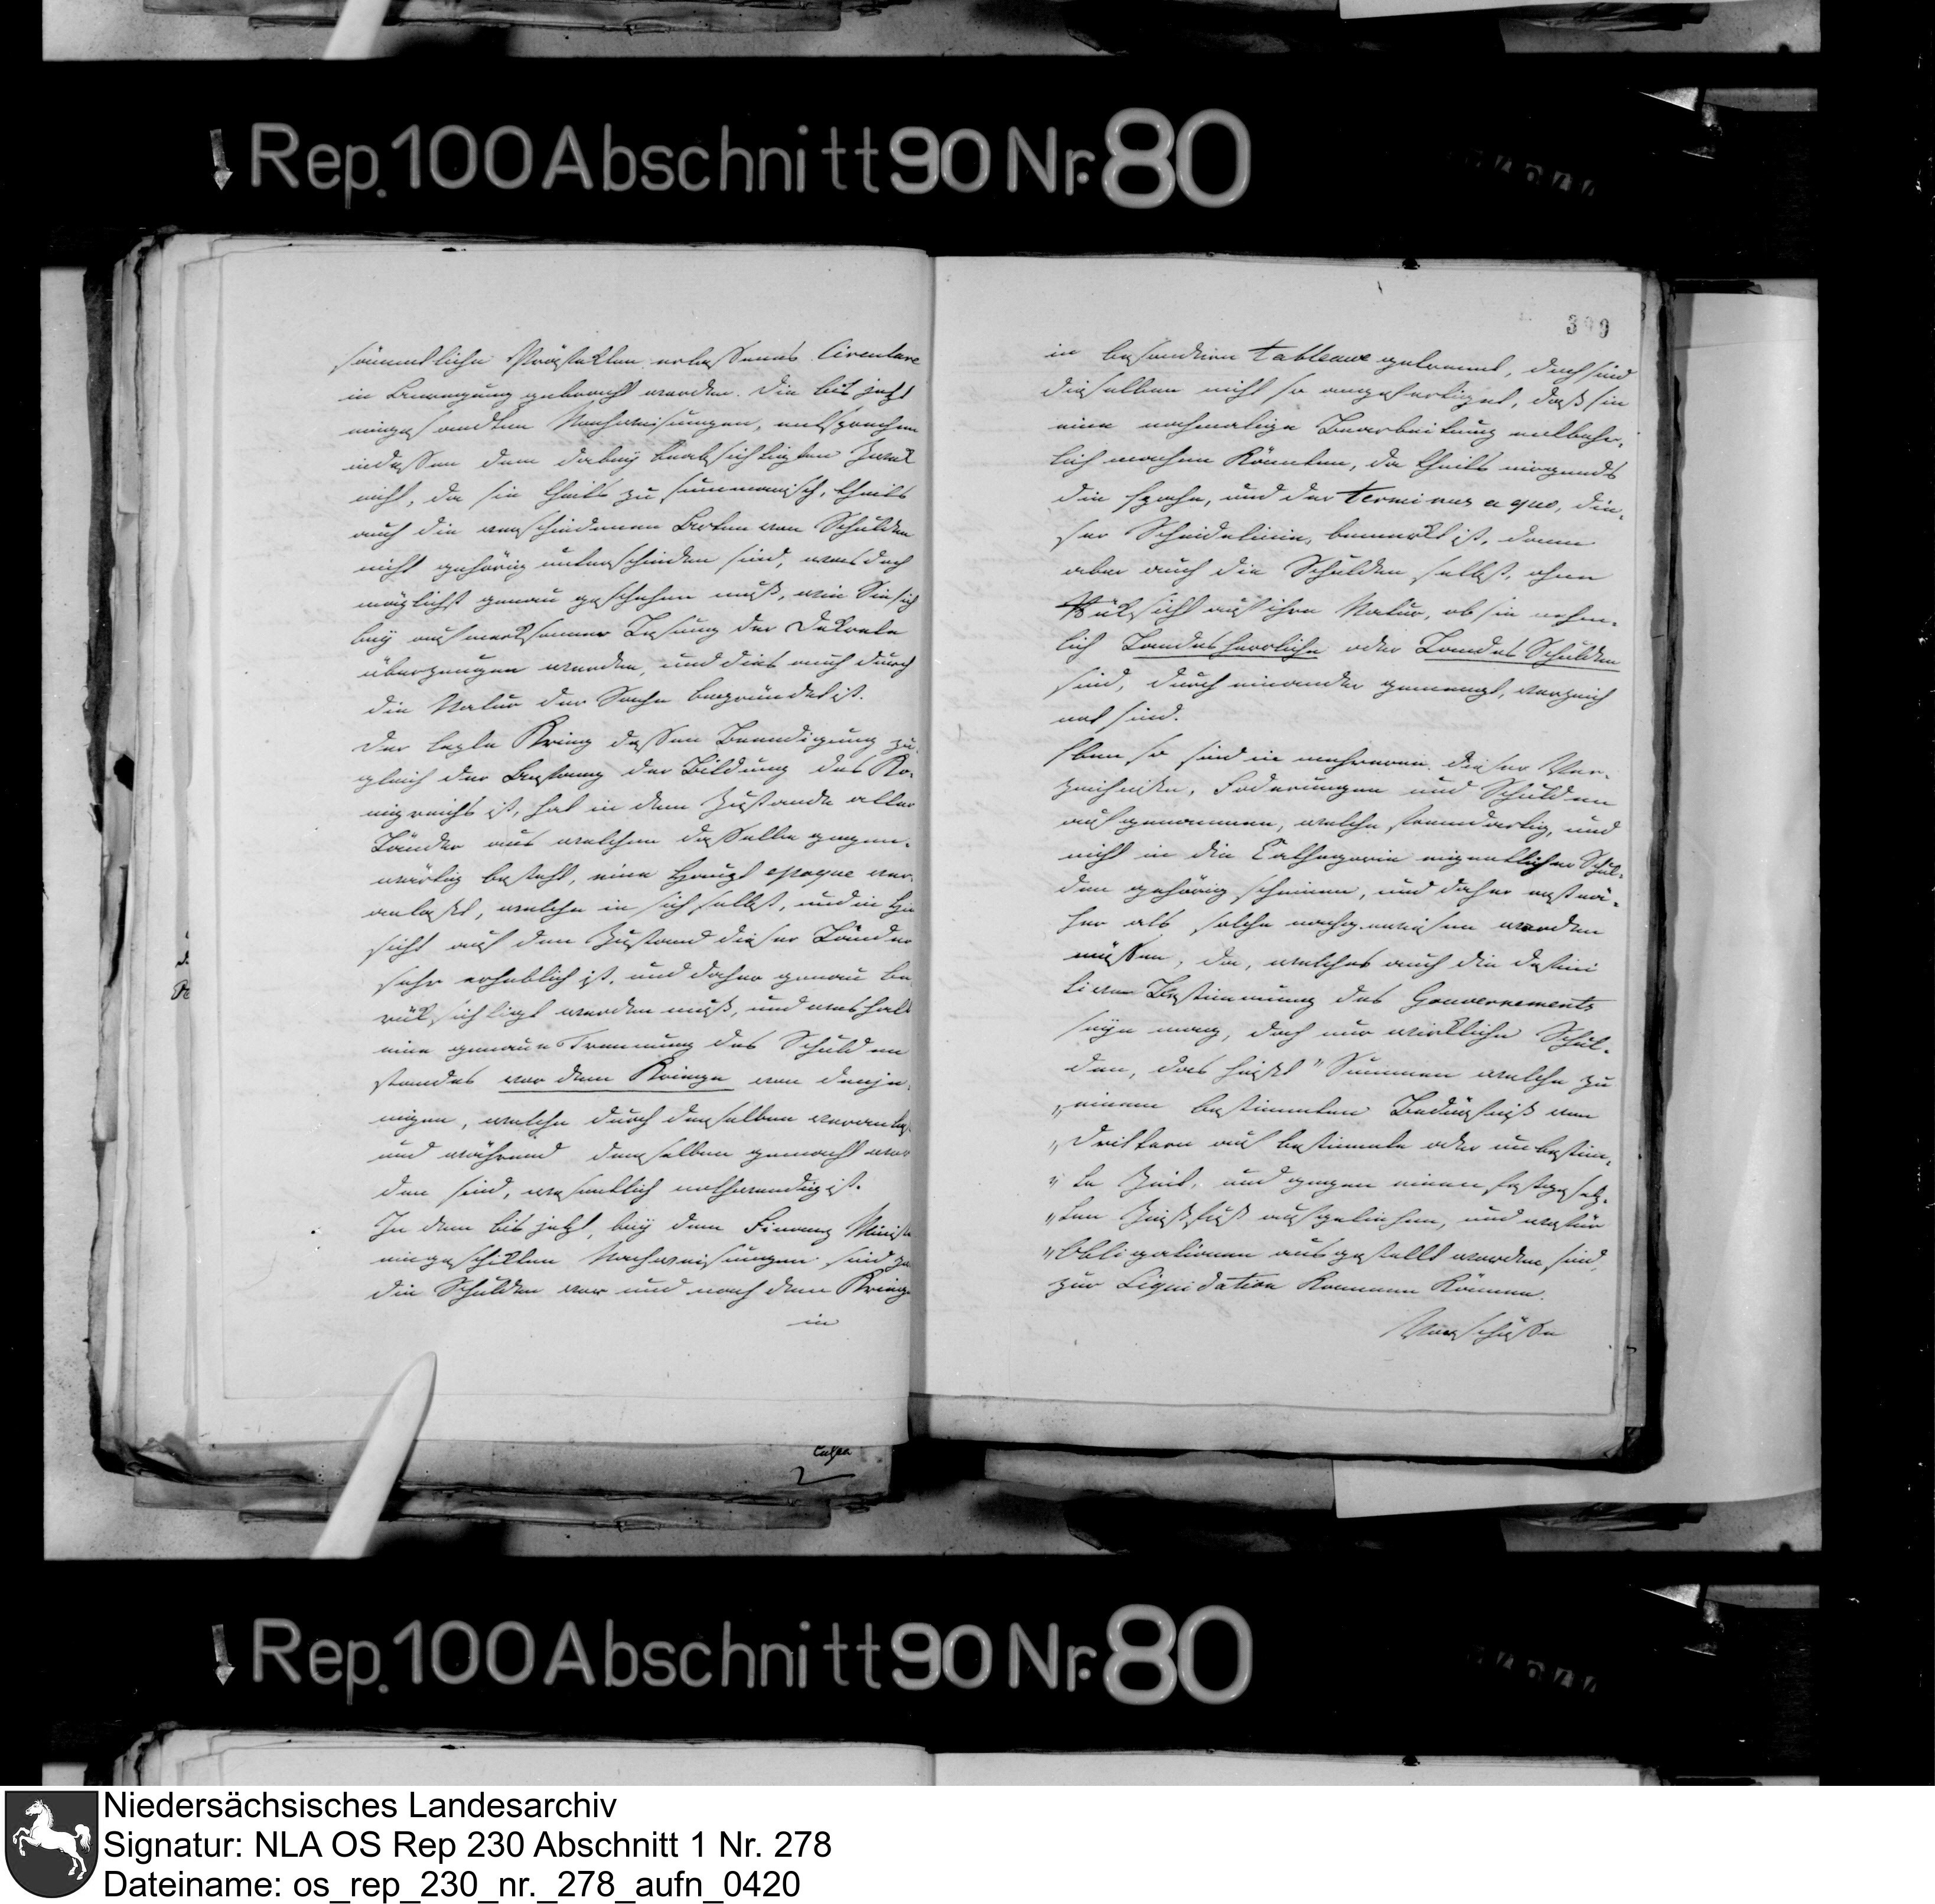 Rep. 100 Abschnitt 90 Nr. 80
sämmtliche Präfekten erlassenes Circulare
in Anregung gebracht worden. Die bis jetzt
eingesandten Nachweisungen, entsprechen
indessen dem dabey beabsichtigten Zweck
nicht, da sie theils zu summarisch, theils
auch die verschiedenen Arten von Schulden
nicht gehörig unterschieden sind, was doch
möglichst genau geschehen muß, wie Sie sich
bey aufmerksamer Lesung der Dekrete
überzeugen werden, und dies auch durch
die Natur der Sache begründet ist.
Der letzte Krieg dessen Beendigung zu-
gleich der Anfang der Bildung des Kö-
nigreichs ist, hat in dem Zustande aller
Länder aus welchen dasselbe gegen-
wärtig besteht, eine Haupt epoque ver-
anlaßt, welche in sich selbst, und in Hin
sicht auf den Zustand dieser Länder
sehr erheblich ist, und daher genau be
rücksichtigt werden muß, und weshalb
eine genaue Trennung des Schulden
standes vor dem Kriege von denje-
nigen, welche durch denselben veranlaß
und während demselben gemacht wor
den sind, wesentlich nothwendig ist.
In den bis jetzt, bey dem Finanz Ministe
eingeschickten Nachweisungen sind zw
die Schulden vor und nach dem Kriege
in
399
in besondern tableaux getrennt, doch sind
dieselben nicht so angefertiget, daß sie
eine nochmalige Bearbeitung entbehr-
lich machen könnten, da theils nirgends
die Epoche, und der terminus a quo, die-
ser Scheidelinie, bemerkt ist, dann
aber auch die Schulden selbst, ohne
Rücksicht auf ihre Natur, ob sie nehm-
lich Landesherrliche oder Landes Schulden
sind, durch einander gemengt, verzeich
net sind.
Eben so sind in mehreren dieser Ver-
zeichniße, Foderungen und Schulden
aufgenommen, welche fremdartig, und
nicht in die Cathegorie eigentlicher Schul-
den gehörig scheinen, und daher erst nä-
her als solche nachgewiesen werden
müssen, da, welches auch die defini
tive Bestimmung des Gouvernements
seyn mag, doch nur wirkliche Schul-
den, das heißt "Summen welche zu
"einem bestimmten Bedürfniß von
"Drittern auf bestimmte oder unbestim-
"te Zeit, und gegen einen festgesetz-
"ten Zinßfuß aufgeliehen, und wofür
"Obligationen ausgestellt worden sind,
zur Liquidation kommen können.
Vorschüsse
Rep. 100 Abschnitt 90 Nr. 80
Niedersächsisches Landesarchiv
Signatur: NLA OS Rep 230 Abschnitt 1 Nr. 278
Dateiname: os_rep_230_nr._278_aufn_0420